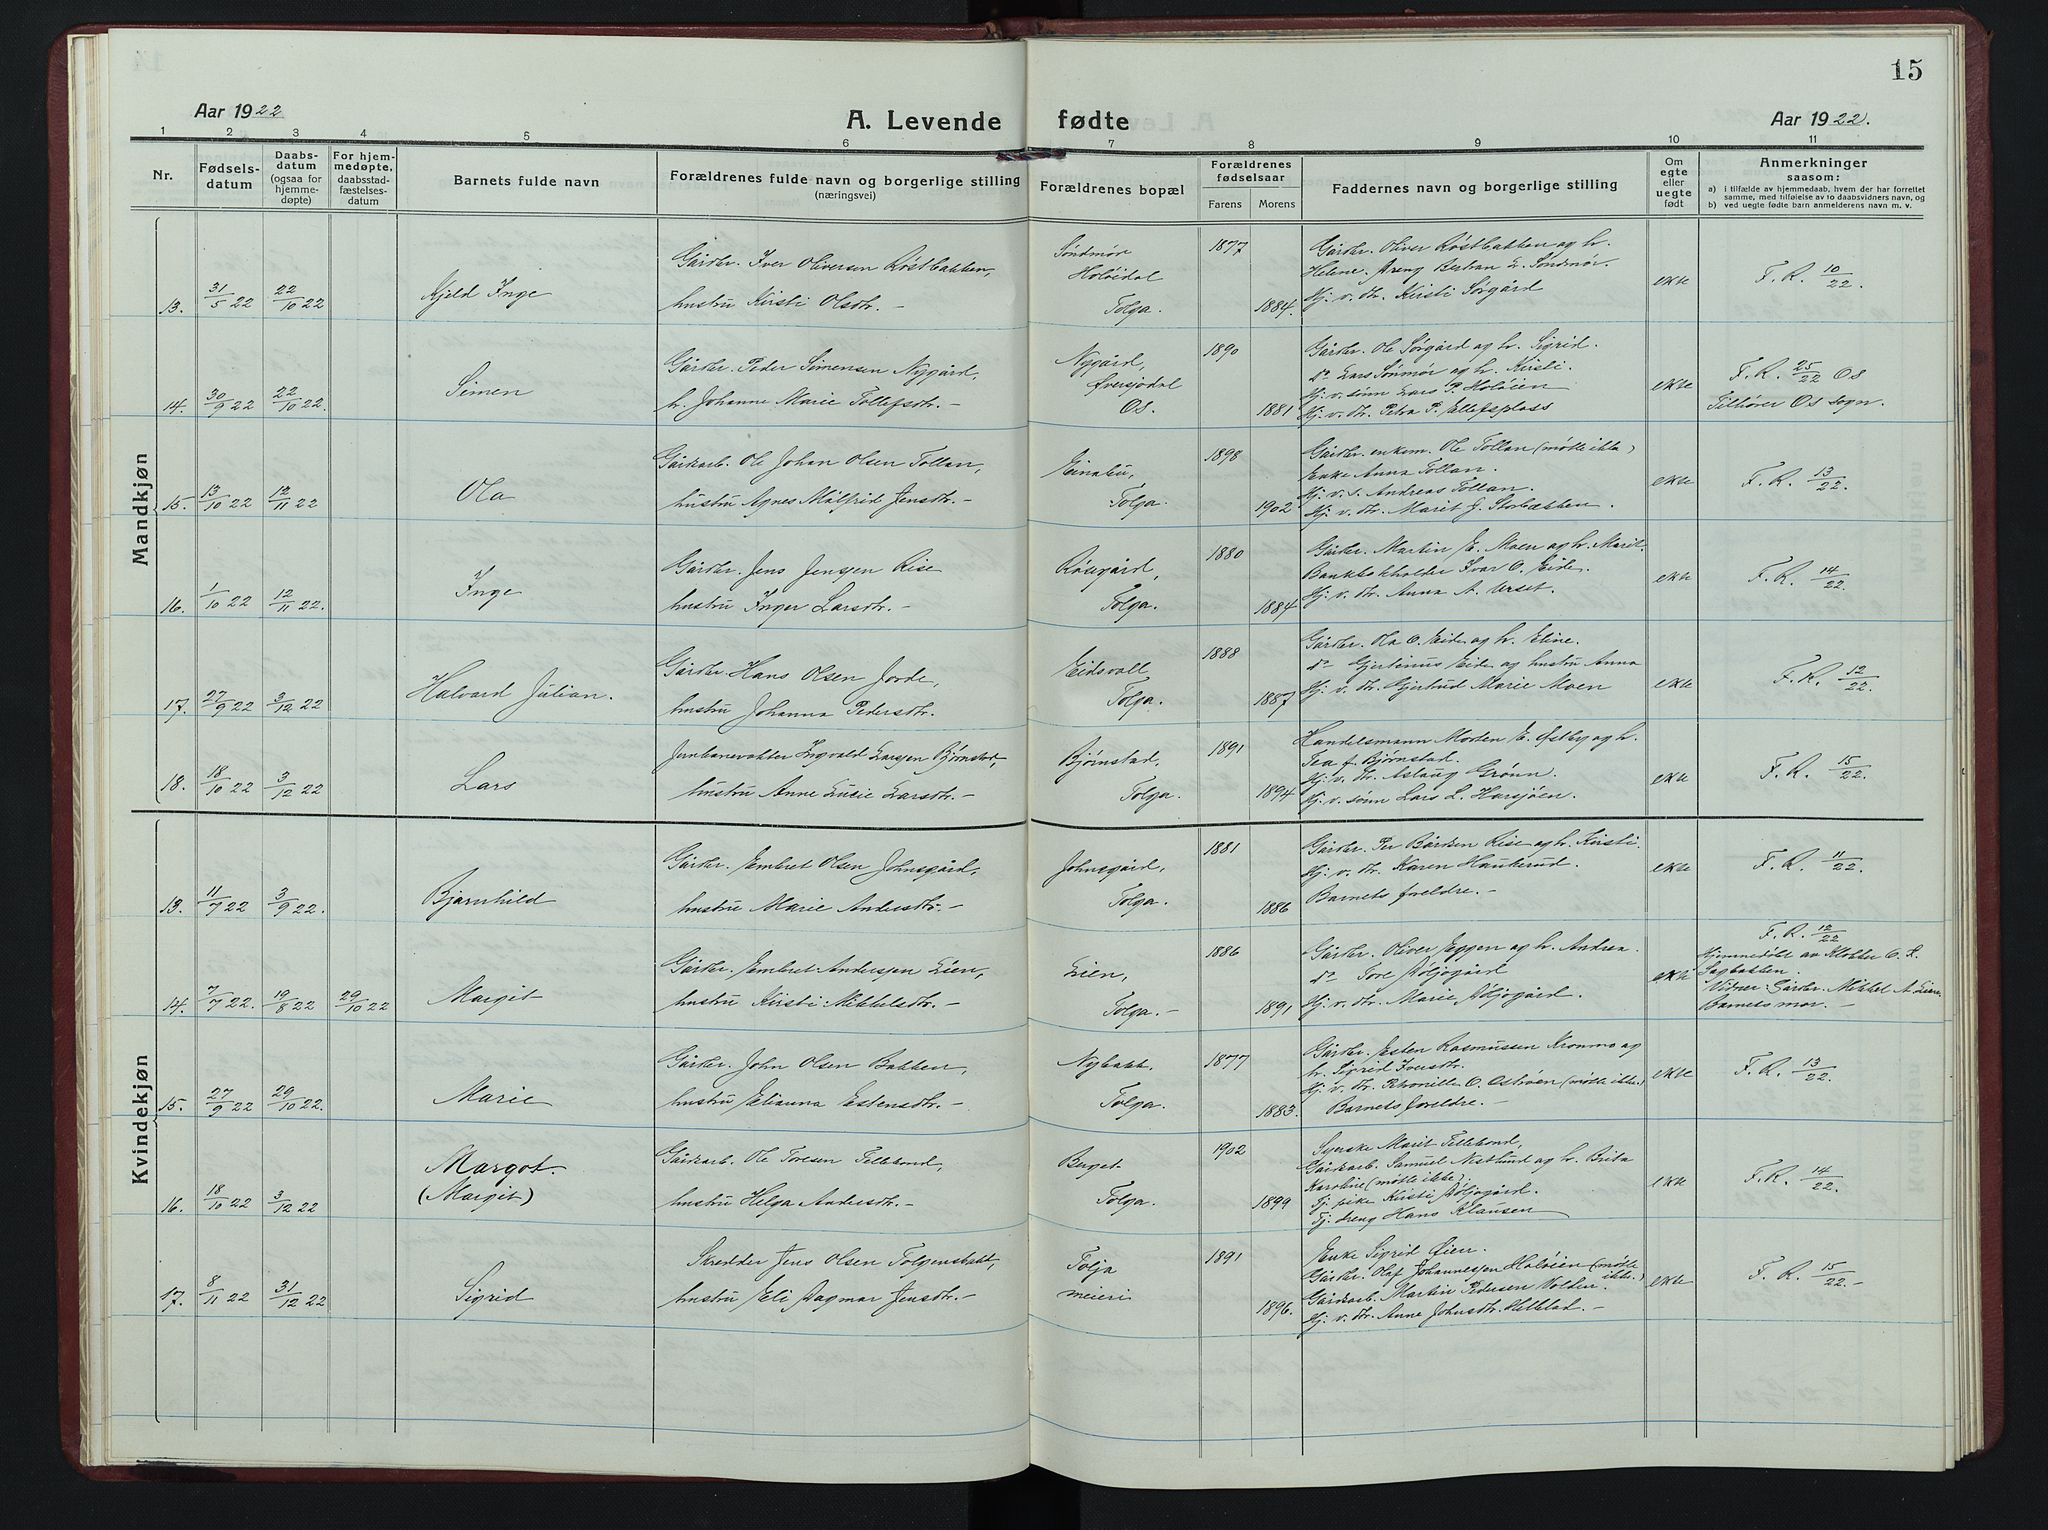 15
Aar 1922
A. Levende fødte
Aar 1922.
1 2 3 4 5 6 7 8 9 10 11
Nr.
Fødselsdatum
Daabsdatum (ogsaa for hjemmedøpte)
For hjemmedøpte, daabsstadfæstelsesdatum
Barnets fulde navn
Forældrenes fulde navn og borgerlige stilling (næringsvei)
Forældrenes bopæl
Forældrenes fødselsaar
Farens Morens
Faddernes navn og borgerlige stilling
Om egte eller uegte født
Anmerkninger saasom:
a) i tilfælde av hjemmedaab, hvem der har forrettet samme, med tilføielse av to daabsvidners navn, og
b) ved uegte fødte barn anmelderens navn m. v.
Mandkjøn
13. 31/5 22 22/10 22 Kjeld Inge
Gårdbr. Iver Oliversen Røstbakken,
hustru Kirsti Olsdtr. –
Søndmør
Holøidal
Tolga.
1877
1884.
Gårdbr. Oliver Røstbakken og h.
Helene. Dreng Bertran Søndmør.
Hj. v. dtr. Kirsti Sørgård
ekte
F. R. 10/22.
14. 30/9 22 22/10 22. Simen
Gårdbr. Peder Simensen Nygård,
h. Johanne Marie Tollefsdtr. –
Nygård,
Øversjødal
Os.
1890
1881
Gårdbr. Ole Sørgård og h. Sigrid.
do Lars Sønmør og h. Kirsti.
Hj. v. sønn Lars P. Holøien
Hj. v. dtr. Petra P. Ellefsplass
ekte
F. R. 25/22 Os
Tilhører Os sogn.
15. 13/10 22 12/11 22 Ola
Gårdarb. Ole Johan Olsen Tollan,
hustru Agnes Målfrid Jensdtr. –
Einabu,
Tolga.
1898
1902
Gårdbr. enkem. Ole Tollan (møtte ikke)
Enke Anna Tollan.
Hj. v. s. Andreas Tollan.
Hj. v. dtr. Marit J. Storbækken.
ekte
F. R. 13/22.
16. 1/10 22 12/11 22. Inge
Gårdbr. Jens Jensen Rise
hustru Inger Larsdtr. –
Tolga.
1880
1884
Gårdbr. Martin E. Moen og h. Marit.
Bankbokholder Ivar O. Eide.
Hj. v. dtr. Anna A. Urset.
ekte
F. R. 14/22
17. 27/9 22 3/12 22 Halvard Julian.
Gårdbr. Hans Olsen Jorde,
hustru Johanna Pedersdtr.
Eidsvoll
Tolga.
1888
1887
Gårdbr. Ola O. Eide og h. Eline.
do Gjertinus Eide og hustru Anna
Hj. v. dtr. Gjertrud Marie Moen
ekte
F. R. 12/22.
18. 18/10 22 3/12 22 Lars
Jernbanevokter Ingvald Larsen Bjørnstad,
hustru Anne Lucie Larsdtr. –
Bjørnstad,
Tolga.
1891
1894
Handelsmann Morten E. Østby og h.
Tea f. Bjørnstad.
Hj. v. dtr. Aslaug Grønn.
Hj. v. sønn Lars L. Harsjøen.
ekte
F. R. 15/22.
Kvindekjøn
13. 11/7 22 3/9 22. Bjarnhild
Gårdbr. Embret Olsen Johnsgård,
hustru Marie Andersdtr. –
Johnsgård,
Tolga.
1881
1886
Gårdbr. Per Bårdsen Rise og h. Kirsti.
Hj. v. dtr. Karen Haukerud.
Barnets foreldre. –
ekte
F. R. 11/22.
14. 7/7 22. 19/8 22 29/10 22 Margit
Gårdbr. Embret Andersen Lien,
hustru Kirsti Mikkelsdtr. –
Lien,
Tolga. –
1886
1891
Gårdbr. Oliver Eggen og h. Andrea.
do Tore Døljøgård
Hj. v. dtr. Marie Døljøgård.
ekte
F. R. 12/22
Hjemmedøbt av Klokker O. K.
Sagbakken.
Vidner: Gårdbr. Mikkel A. Lien.
Barnets mor. –
15. 27/9 22 29/10 22. Marie
Gårdbr. John Olsen Bakken,
hustru Elianna Estensdtr. –
Nybakk.
Tolga.
1877
1883.
Gårdbr. Esten Rasmussen Kronmo og
h. Sigrid Iversdtr.
Hj. v. dtr. Petronille O. Osbrøen (møtte ikke.)
Barnets foreldre. –
ekte
F. R. 13/22.
16. 18/10 22 3/12 22 Margot.
(Margit)
Gårdarb. Ole Toresen Tellebond,
hustru Helga Andersdtr. –
Berget
Tolga.
1902
1899
Syerske Marit Tellebond,
Gårdarb. Samuel Nestlund og h. Brita
Karoline (møtte ikke).
Tj. pike Kirsti Døljøgård.
Tj. dreng Hans Klausen
ekte
F. R. 14/22.
17. 8/11 22 31/12 22 Sigrid
Skredder Jens Olsen Tolgensbakk,
hustru Eli Dagmar Jensdtr. –
Tolga
meieri
1891
1896.
Enke Sigrid Øien.
Gårdbr. Olaf Johannessen Holøien (møtte ikke.)
Gårdarb. Martin Pedersen Volden
Hj. v. dtr. Anne Johnsdtr. Hellstad. –
ekte
F. R. 15/22. –